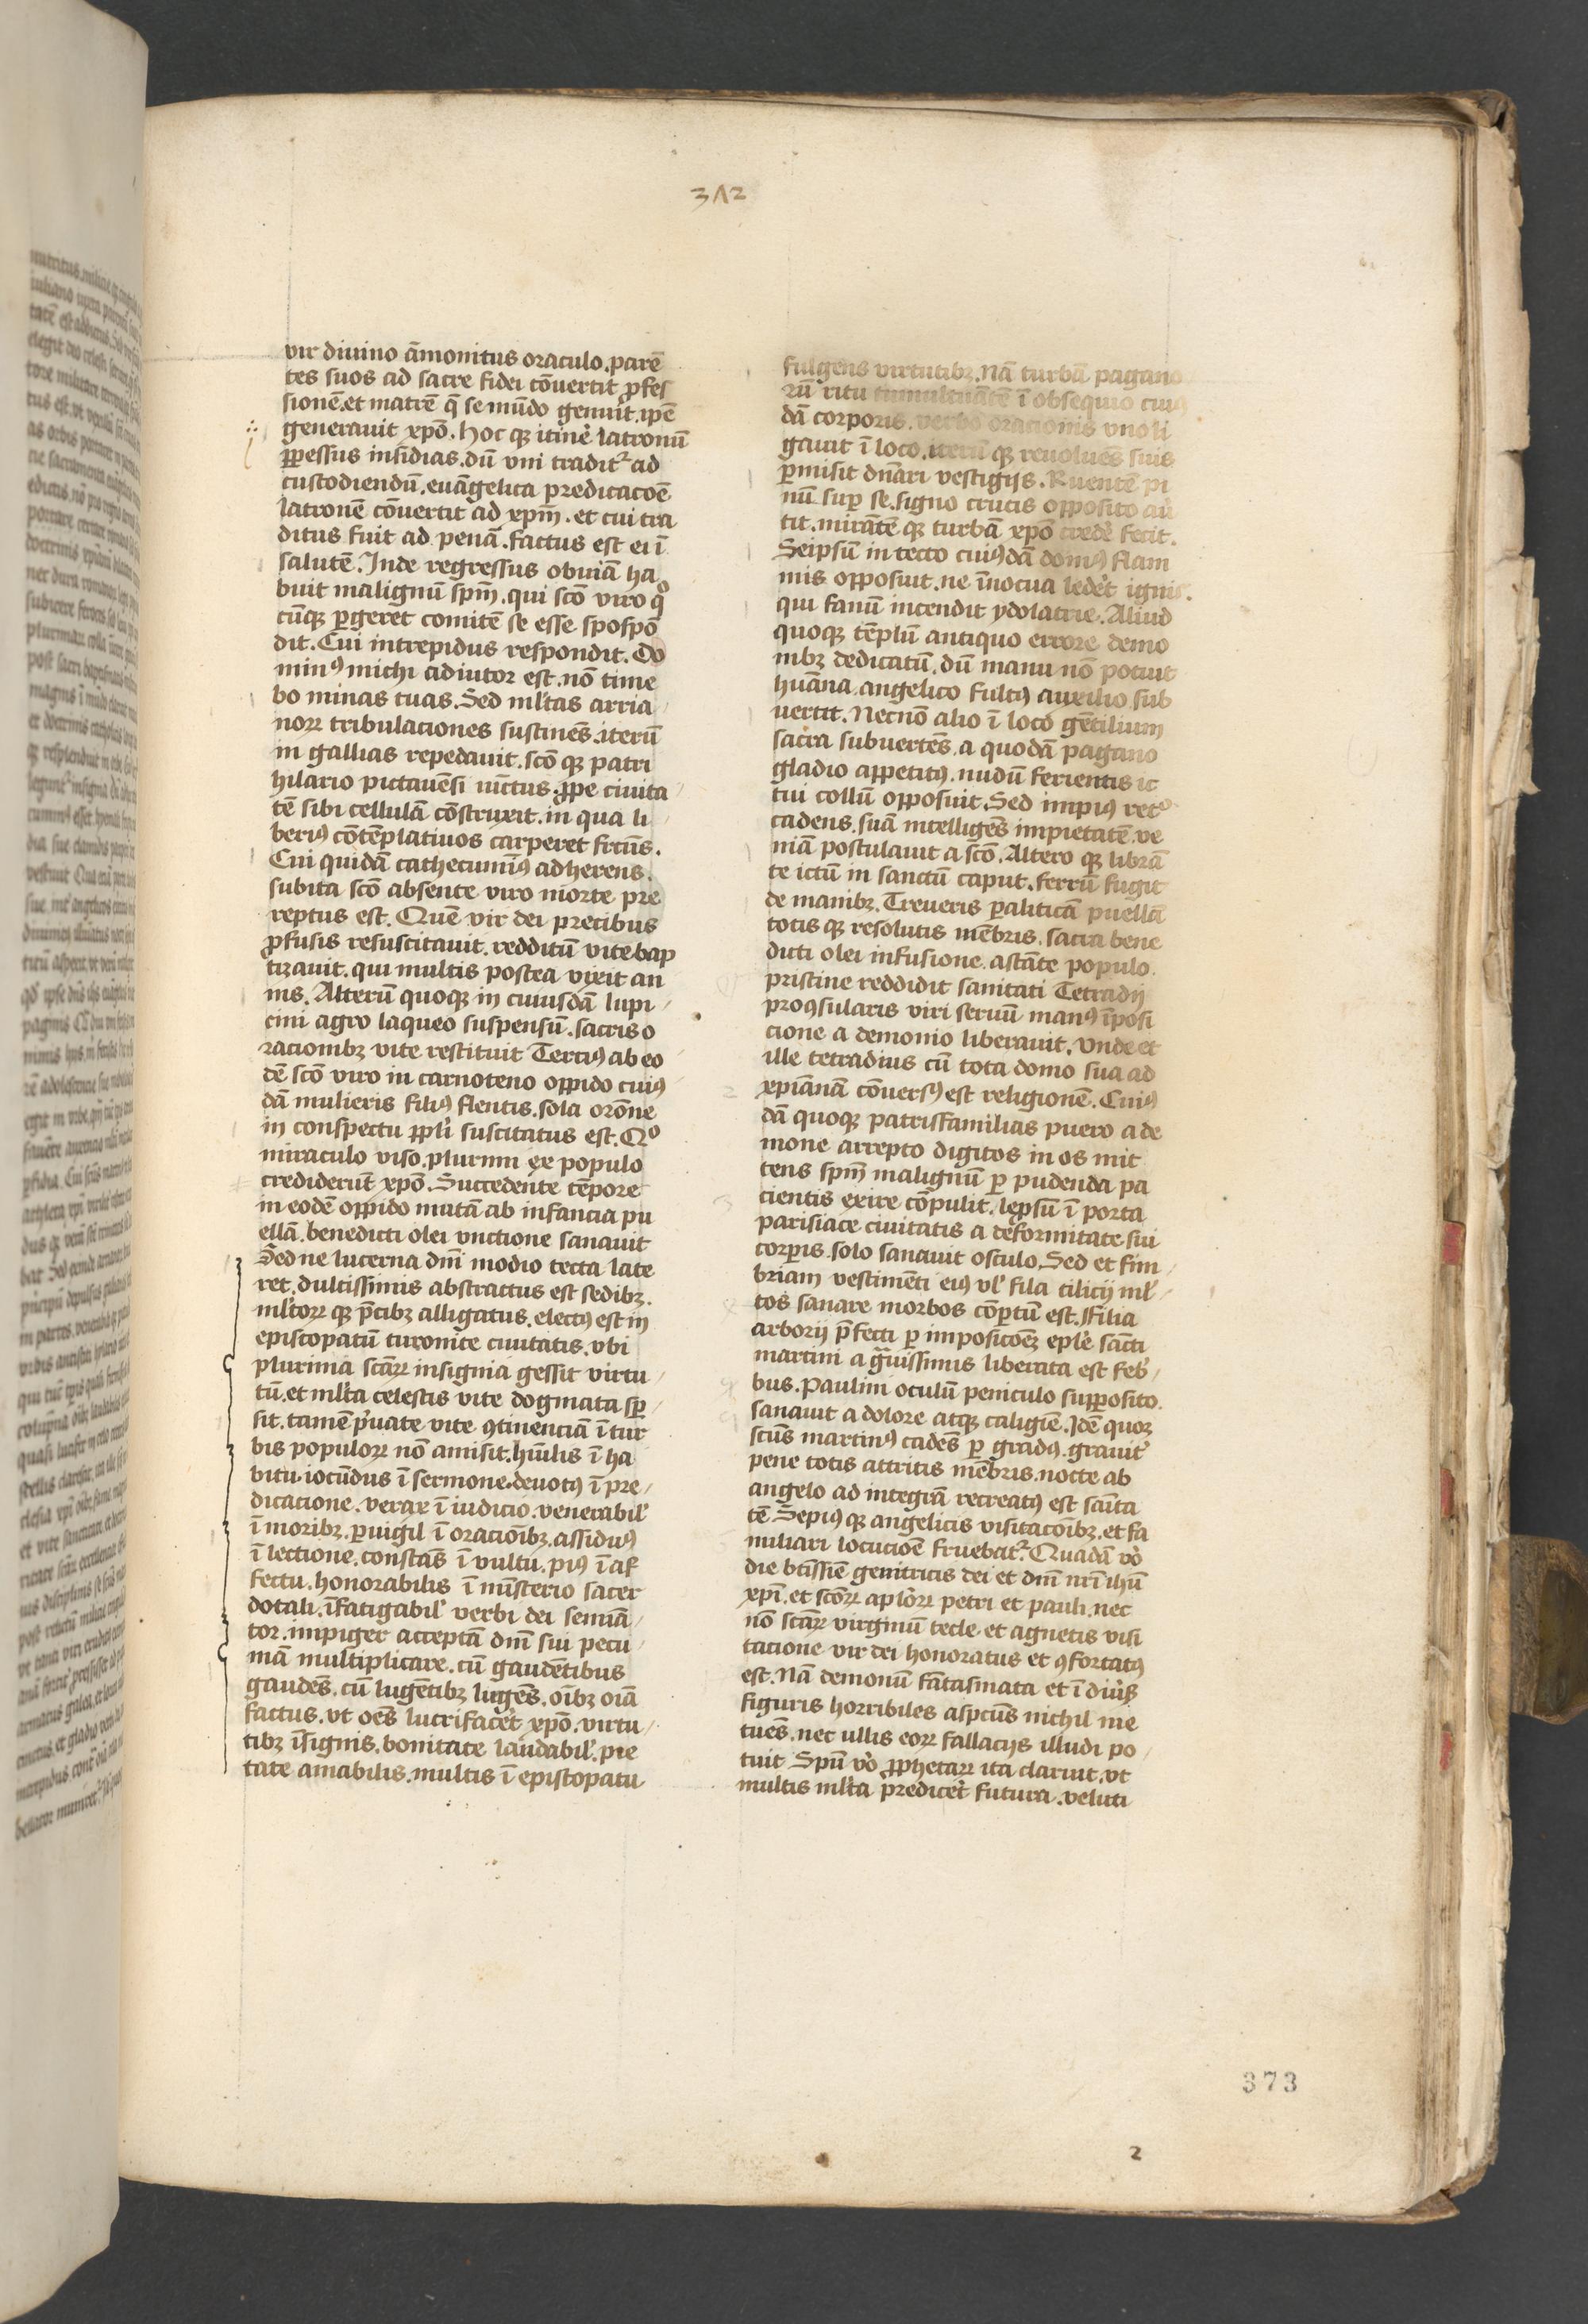 3Λ2
vir diuino āmonitus oraculo. parē
tes suos ad sacre fidei cōuertit ꝓfes
sionē. et matrē q̄ se mūdo genuit. ip̄e
generauit xp̄o. Hoc qꝫ itinꝰe latronū
ꝓpessus insidias. dū vni tradit᷑ ad
custodiendū. euāgelica predicacōe
latronē cōuertit ad xp̄m. et cui tra
ditus fuit ad penā. factus est ei ī
salutē. Inde regressus obuiā ha
buit malignū sp̄m. qui scō viro qͦ
cūqꝫ ꝑgeret comitē se esse spospō
dit. Cui intrepidus respondit. Do
minꝰ michi adiutor est. nō time
bo minas tuas. Sed ml̄tas arria
noꝝ tribulaciones sustinēs. iterū
in gallias repedauit. scō qꝫ patri
hilario pictauēsi iūctus. ꝓpe ciuita
tē sibi cellulā cōstruxit. in qua li
beriꝰ cōtēplatiuos carperet fructꝰ.
Cui quidā cathecuminꝰ adherens.
subita scō absente viro morte pre
reptus est. Quē vir dei precibus
ꝓfusis resuscitauit. redditū vite bap
tizauit. qui multis postea vixit an
nis. Alterū quoqꝫ in cuiusdā lupi
cini agro laqueo suspensū. sacris o
racionibꝫ vite restituit Terciꝰ ab eo
dē scō viro in carnoteno oppido cuiꝰ
dā mulieris filiꝰ flentis. sola orōne
in conspectu ppl̄i suscitatus est. Qͦ
miraculo viso. plurimi ex populo
crediderūt xp̄o. Succedente tēpore
in eodē oppido mutā ab infancia pu
ellā. benedicti olei vnctione sanauit
Sed ne lucerna dn̄i modio tecta late
ret. dulcissimis abstractus est sedibꝫ.
ml̄toꝝ qꝫ p̄cibꝫ alligatus. electꝰ est in
episcopatū turonice ciuitatis. vbi
plurima scāꝝ insignia gessit virtu
tū. et ml̄ta celestis vite dogmata sꝑ
sit. tamē p̄uate vite ꝯtinenciā ī tur
bis populoꝝ nō amisit. hūilis ī ha
bitu. iocūdus ī sermone. deuotꝰ ī pre
dicatione. verax ī iudicio. venerabil̓
ī moribꝫ. ꝑuigil ī oraciōibꝫ. assiduꝰ
ī lectione. constās ī vultu. piꝰ ī af
fectu. honorabilis ī mīsterio sacer
dotali. īfatigabil̓ verbi dei semīa
tor. impiger acceptā dn̄i sui pecu
niā multiplicare. cū gaudētibus
gaudēs. cū lugētibꝫ lugēs. oībꝫ oīa
factus. vt oēs lucrifacꝰet xp̄o. virtu
tibꝫ īsignis. bonitate laudabil̓. pie
tate amabilis. multis ī episcopatu
fulgens virtutibꝫ. Nā turbā pagano
rū ritu tumultuātē ī obsequio cuiꝰ
dā corporis. verbo oracionis vno li
gauit ī loco. iterū qꝫ reuolues suis
ꝑmisit dn̄ari vestigijs. Ruentē pi
nū suꝑ se. signo crucis opposito aūt
tit. mirātē qꝫ turbā xp̄o credꝰe fecit.
Seipsū in tecto cuiꝰdā domꝰ flam
mis opposuit. ne īnocua ledꝰet ignis.
qui fanū incendit ydolatrie. Aliud
quoqꝫ tēplū antiquo errore demo
nibꝫ dedicatū. dū manu nō potuit
huāna. angelico fultꝰ auxilio sub
uertit. Necnō alio ī loco gētilium
sacra subuertēs. a quodā pagano
gladio appetitꝰ. nudū ferientis ic
tui collū opposuit. Sed impius ret̊
cadens. suā intelligēs impietatē. ve
niā postulauit a scō. Altero qꝫ librā
te ictū in sanctū caput. ferrū fugit
de manibꝫ. Treueris ꝑaliticā puellā
totis qꝫ resolutis mēbris. sacra bene
dicti olei infusione. astāte populo.
pristine reddidit sanitati Tetradij
proꝯsularis viri seruū manꝰ īposi
cione a demonio liberauit. Vnde et
ille tetradius cū tota domo sua ad
xp̄ianā cōuersꝰ est religionē. Cuiꝰ
dā quoqꝫ patrisfamilias puero a de
mone arrepto digitos in os mit
tens sp̄m malignū ꝑ pudenda pa
cientis exire cōpulit. lepsū ī porta
parisiace ciuitatis a deformitate sui
corꝑis. solo sanauit osculo. Sed et fim
briam vestimēti eiꝰ vl̓ fila cilicij ml̓
tos sanare morbos cōꝑtū est. Filia
arborij p̄fecti ꝑ imposicōeꝫ eplꝰe sāncti
martini a g̃uissimis liberata est feb
bus. Paulini oculū peniculo supposito.
sanauit a dolore atqꝫ caligīe. Idē quoqꝫ
scūs martinꝰ cadēs ꝑ gradꝰ. grauitꝰ
pene totis attritis mēbris. nocte ab
angelo ad integrā recreatꝰ est sanita
tē. Sepiꝰ qꝫ angelicis visitacōibꝫ. et fa
miliari locucioē fruebat᷑. Quadā vꝰo
die btīssīe genitricis dei et dn̄i nr̄i ihū
xp̄i. et scōꝝ aplꝰoꝝ petri et pauli. nec
nō scāꝝ virginū tecle et agnetis visi
tacione vir dei honoratus et ꝯfortatꝰ
est. Nā demonū fātasmata et ī diuꝰsꝭ
figuris horribiles aspectꝰ nichil me
tuēs. nec ullis eoꝝ fallacijs illudi po
tuit Spū vꝰo ꝓphetaꝝ ita claruit. vt
multis ml̄ta predicꝰet futura. veluti
373
2